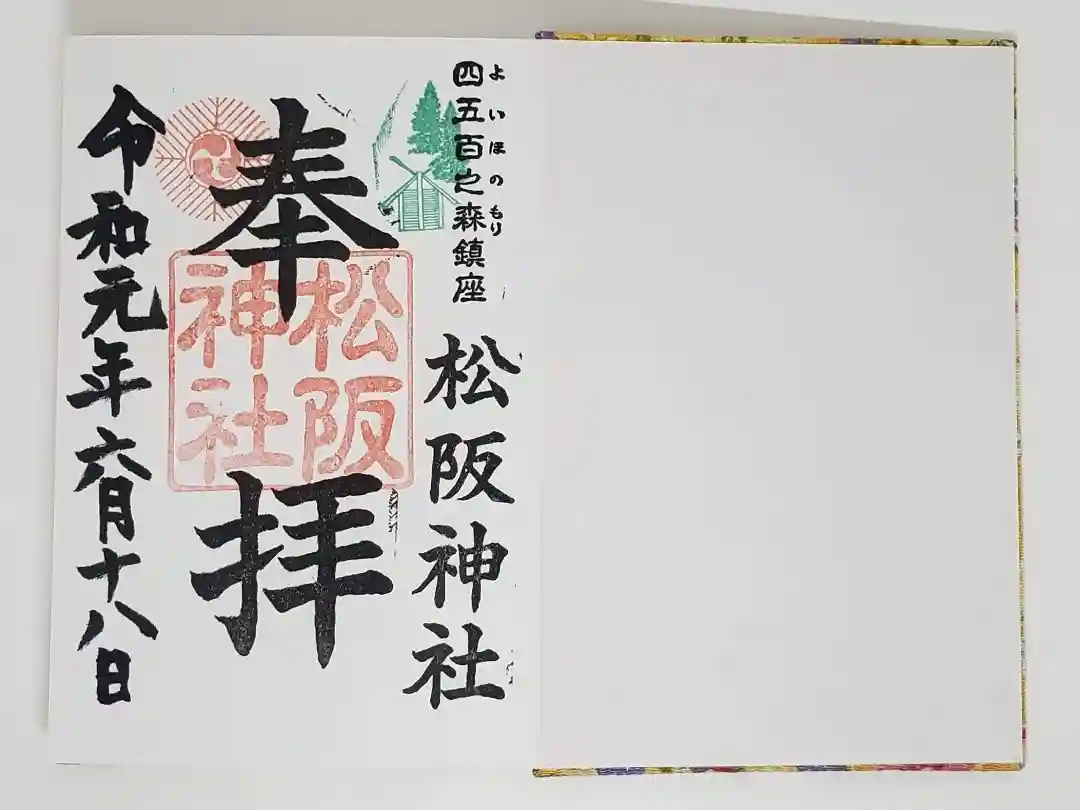 四五百之森鎮座
よいほのもり
松阪神社
奉拝
松阪
神社
令和元年六月十八日